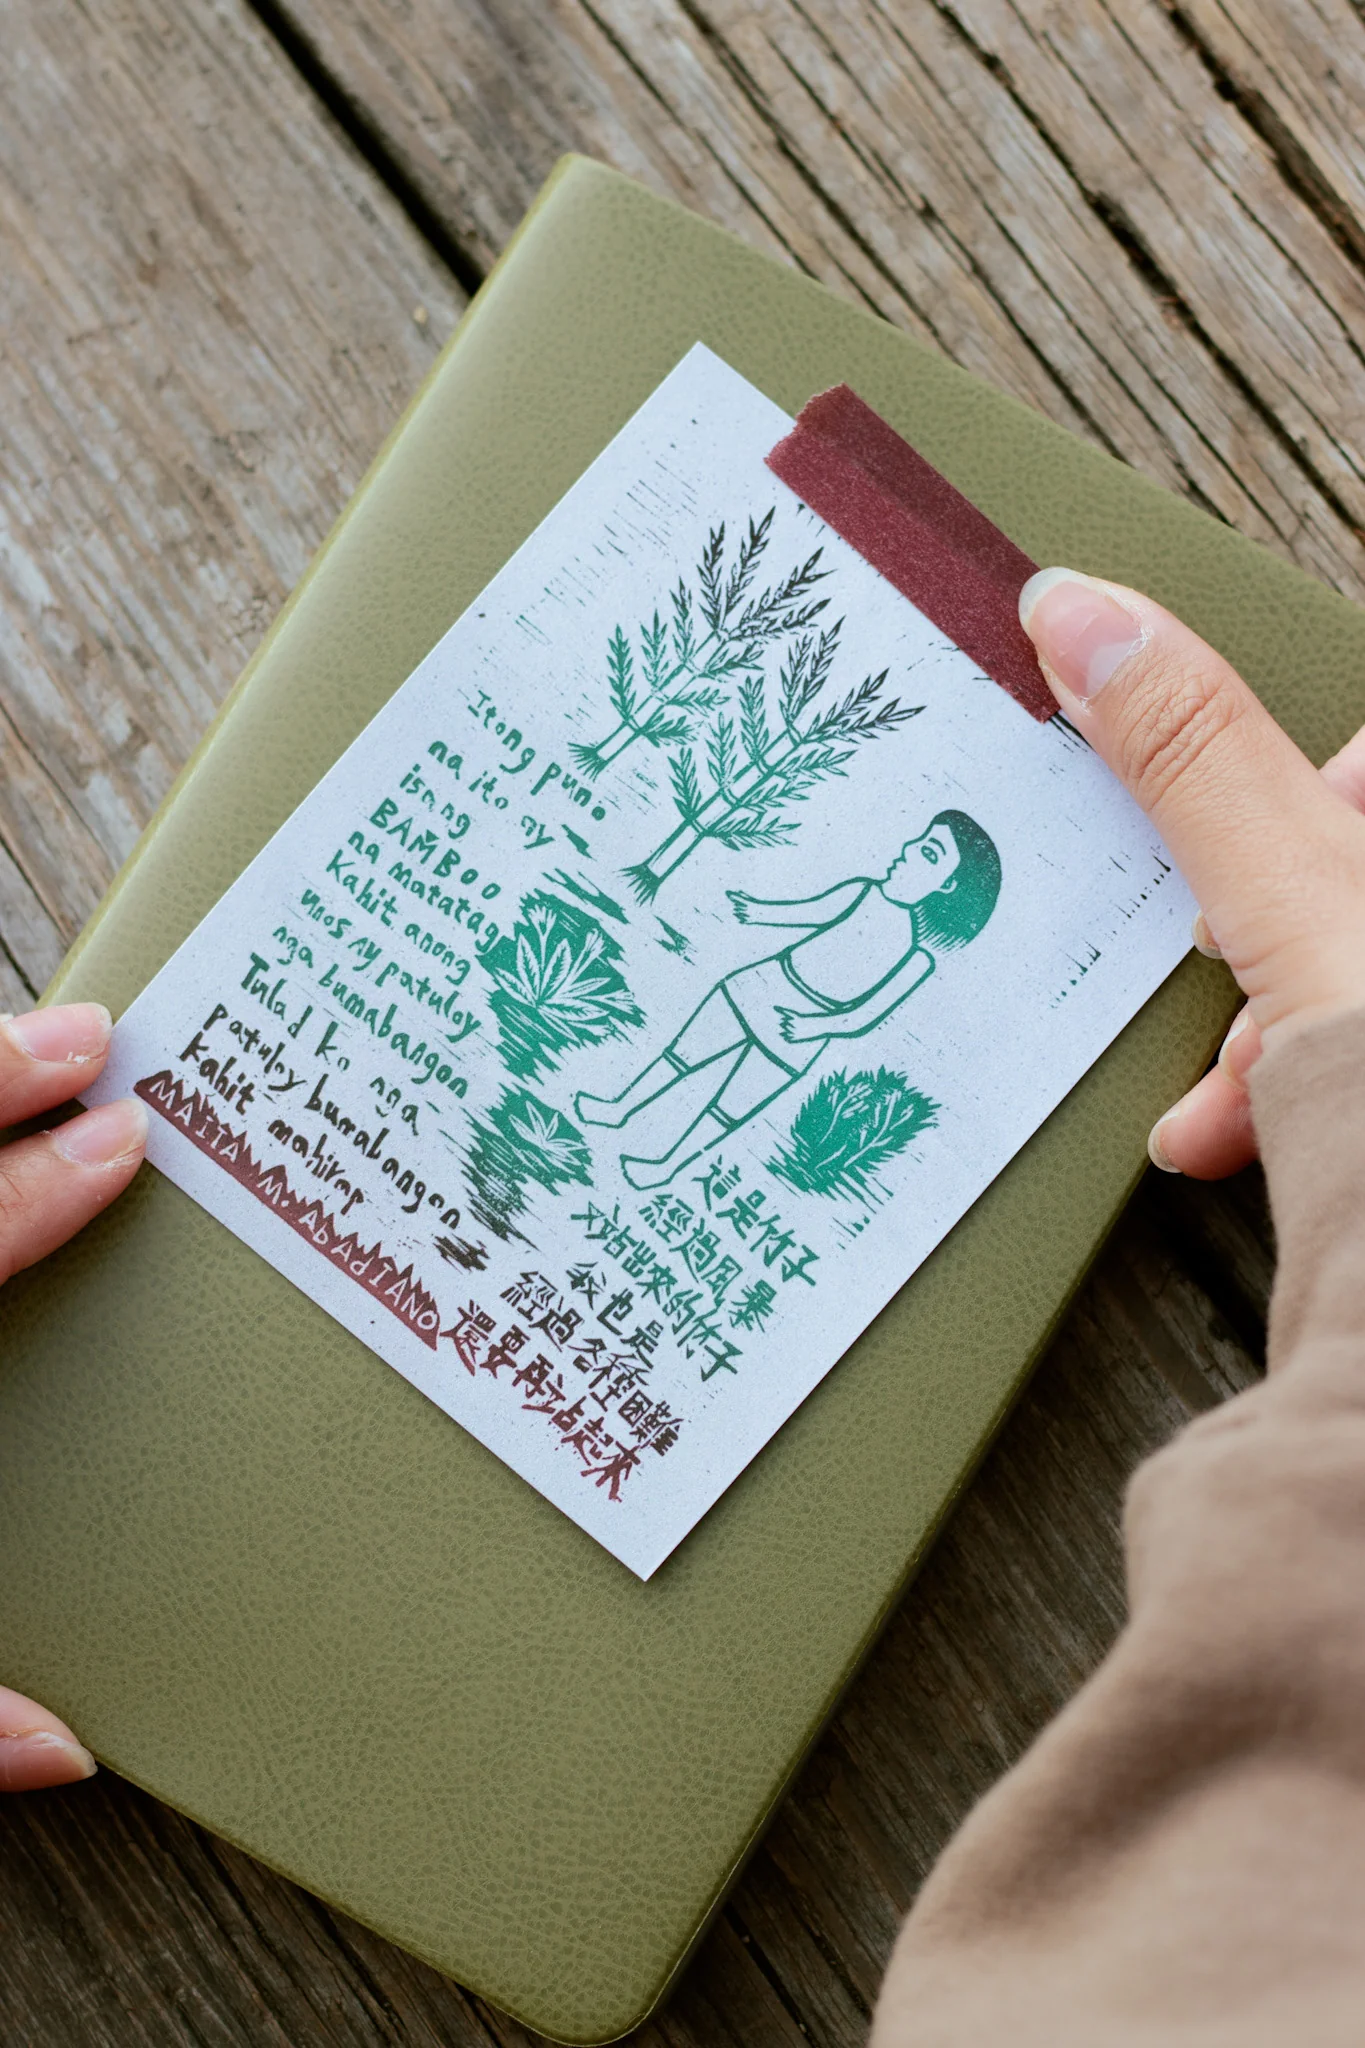 Itong puno
na ito ay
isang
BAMBOO
na matatag
Kahit anong
unos ay patuloy
nga bumabangon
Tulad ko nga
patuloy bumabangon
kahit mahirap
M. ABADIANO
這是竹子
經過風暴
又站出來的竹子
我也是
經過各種困難
還要再站起來